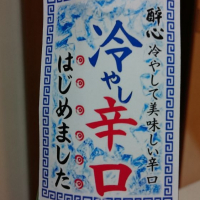 酔心
冷やして美味しい辛口
冷やし辛口
はじめました